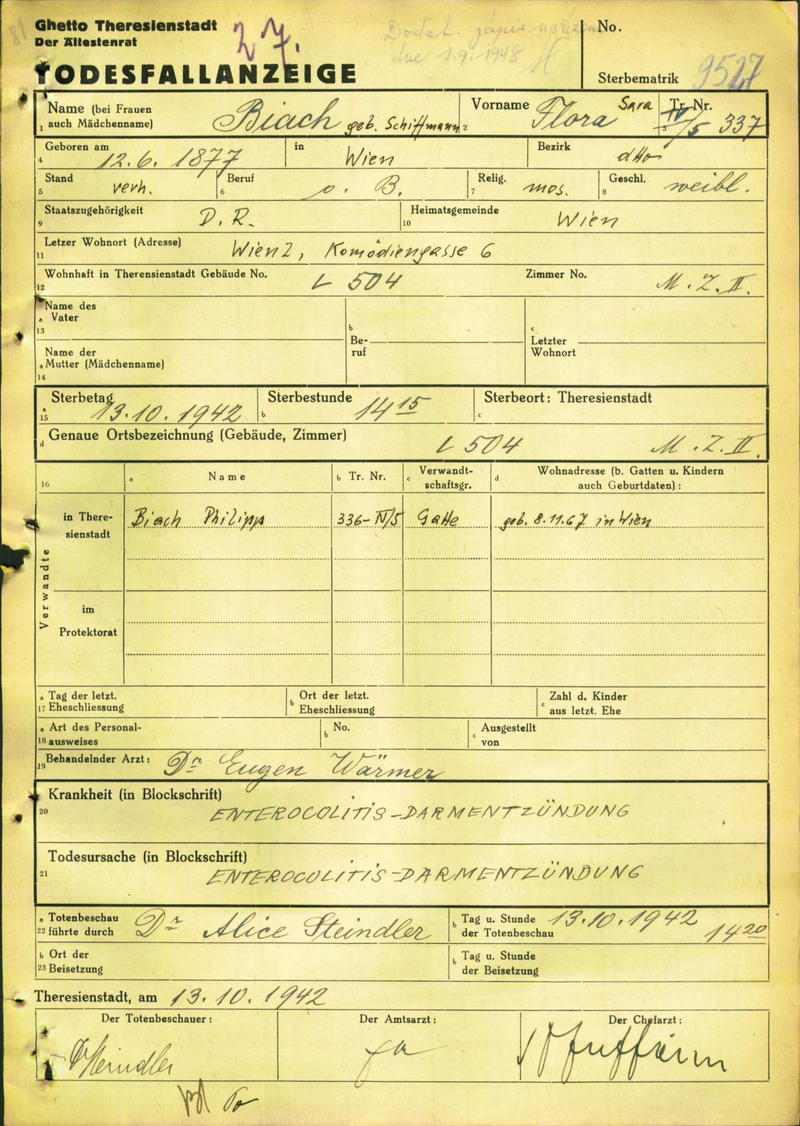 Ghetto Theresienstadt
Der Ältestenrat
27.
No.
TODESFALLANZEIGE
Sterbematrik 9527
Name (bei Frauen auch Mädchenname) Biach geb. Schiffmann
Vorname Flora Sara
Tr. Nr. IV/5 337
Geboren am 12.6.1877
in Wien
Bezirk dtto
Stand verh.
Beruf o. B.
Relig. mos.
Geschl. weibl.
Staatszugehörigkeit D. R.
Heimatsgemeinde Wien
Letzer Wohnort (Adresse) Wien 2, Komödiengasse 6
Wohnhaft in Theresienstadt Gebäude No. L 504
Zimmer No. M. Z. II.
Name des Vater
Beruf
Letzter Wohnort
Name der Mutter (Mädchenname)
Sterbetag 13.10.1942
Sterbestunde 14 15
Sterbeort: Theresienstadt
Genaue Ortsbezeichnung (Gebäude, Zimmer) L 504 M. Z. II.
Name
Tr. Nr.
Verwandtschaftsgr.
Wohnadresse (b. Gatten u. Kindern auch Geburtdaten):
Verwandte
in Theresienstadt
Biach Philipp 336-IV/5 Gatte geb. 8.11.67 in Wien
im Protektorat
Tag der letzt. Eheschliessung
Ort der letzt. Eheschliessung
Zahl d. Kinder aus letzt. Ehe
Art des Personalausweises
No.
Ausgestellt von
Behandelnder Arzt: Dr Eugen Wärmer
Krankheit (in Blockschrift) ENTEROCOLITIS-DARMENTZÜNDUNG
Todesursache (in Blockschrift) ENTEROCOLITIS-DARMENTZÜNDUNG
Totenbeschau führte durch Dr Alice Steindler
Tag u. Stunde der Totenbeschau 13.10.1942 14 20
Ort der Beisetzung
Tag u. Stunde der Beisetzung
Theresienstadt, am 13.10.1942
Der Totenbeschauer:
Der Amtsarzt:
Der Chefarzt:
Dr Steindler